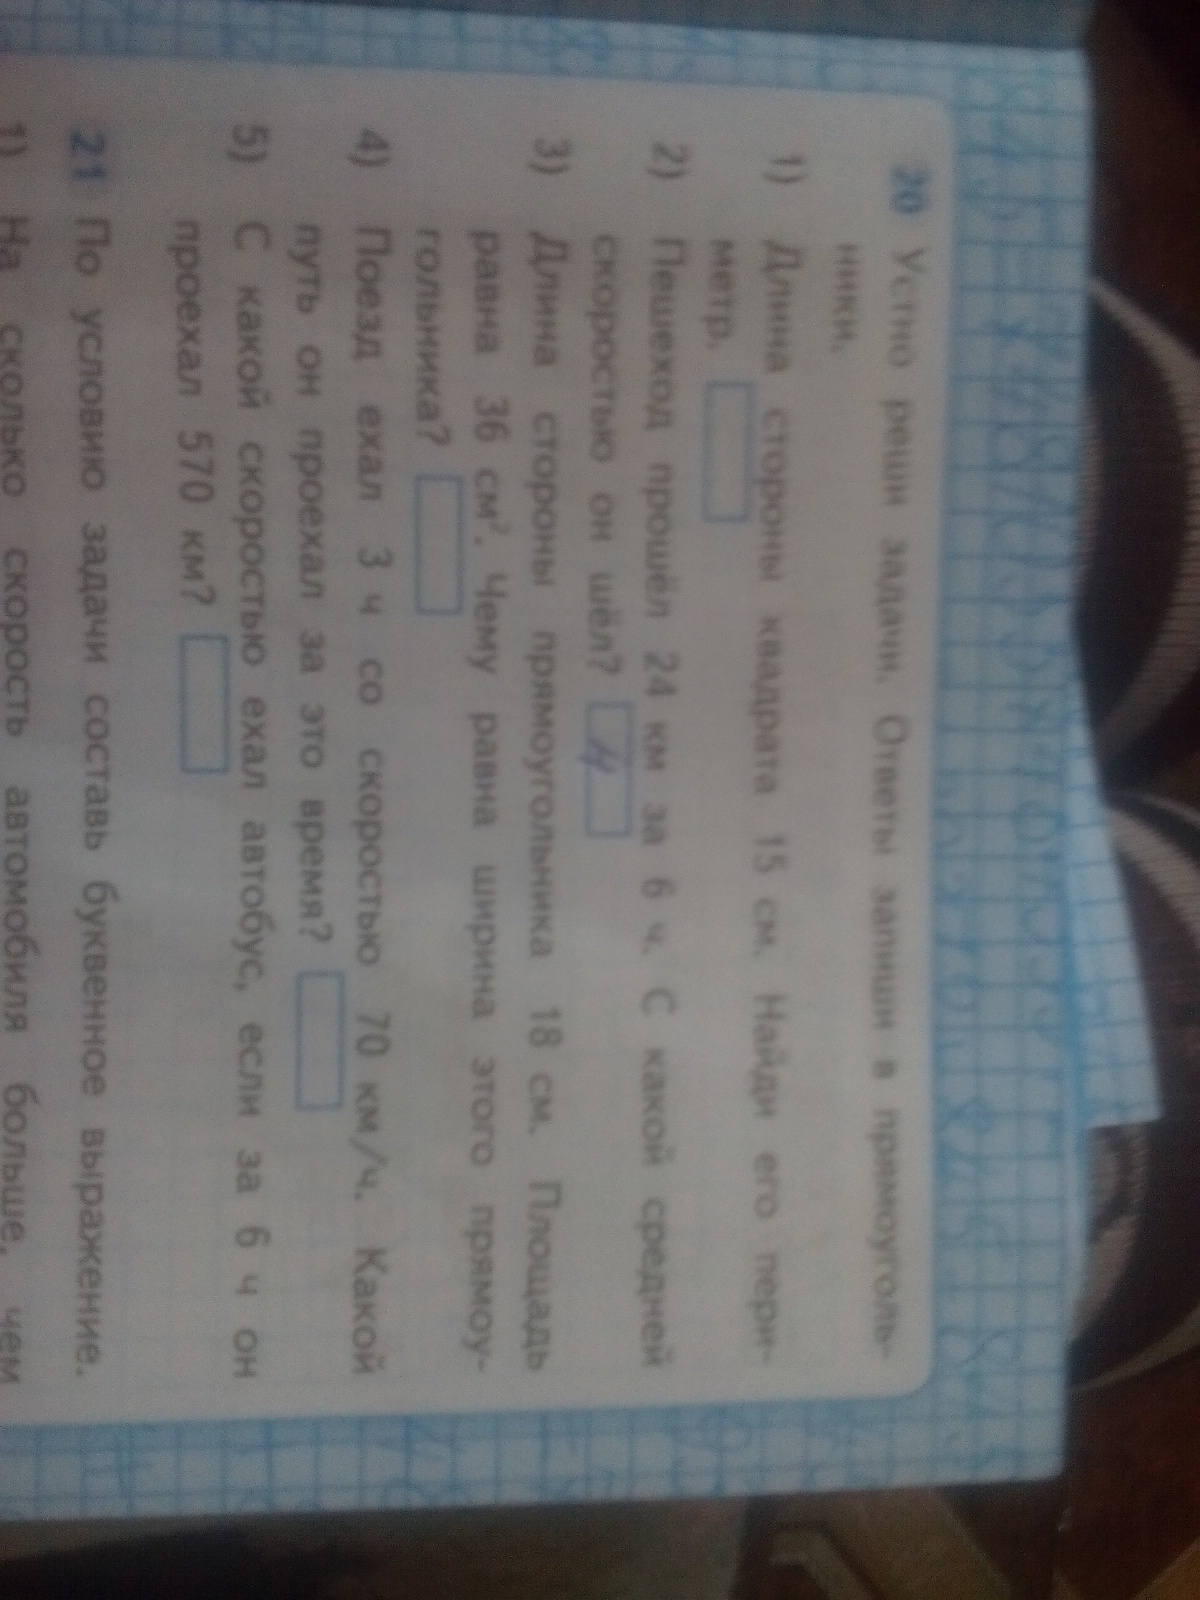 20 Устно реши задачи. Ответы запиши в прямоуголь-
ники.
1) Длина стороны квадрата 15 см. Найди его пери-
метр.
2) Пешеход прошёл 24 км за 6 ч. С какой средней
скоростью он шёл? 4
3) Длина стороны прямоугольника 18 см. Площадь
равна 36 см². Чему равна ширина этого прямоу-
гольника?
4) Поезд ехал 3 ч со скоростью 70 км/ч. Какой
путь он проехал за это время?
5) С какой скоростью ехал автобус, если за 6 ч он
проехал 570 км?
21 По условию задачи составь буквенное выражение.
1) На сколько скорость автомобиля больше, чем